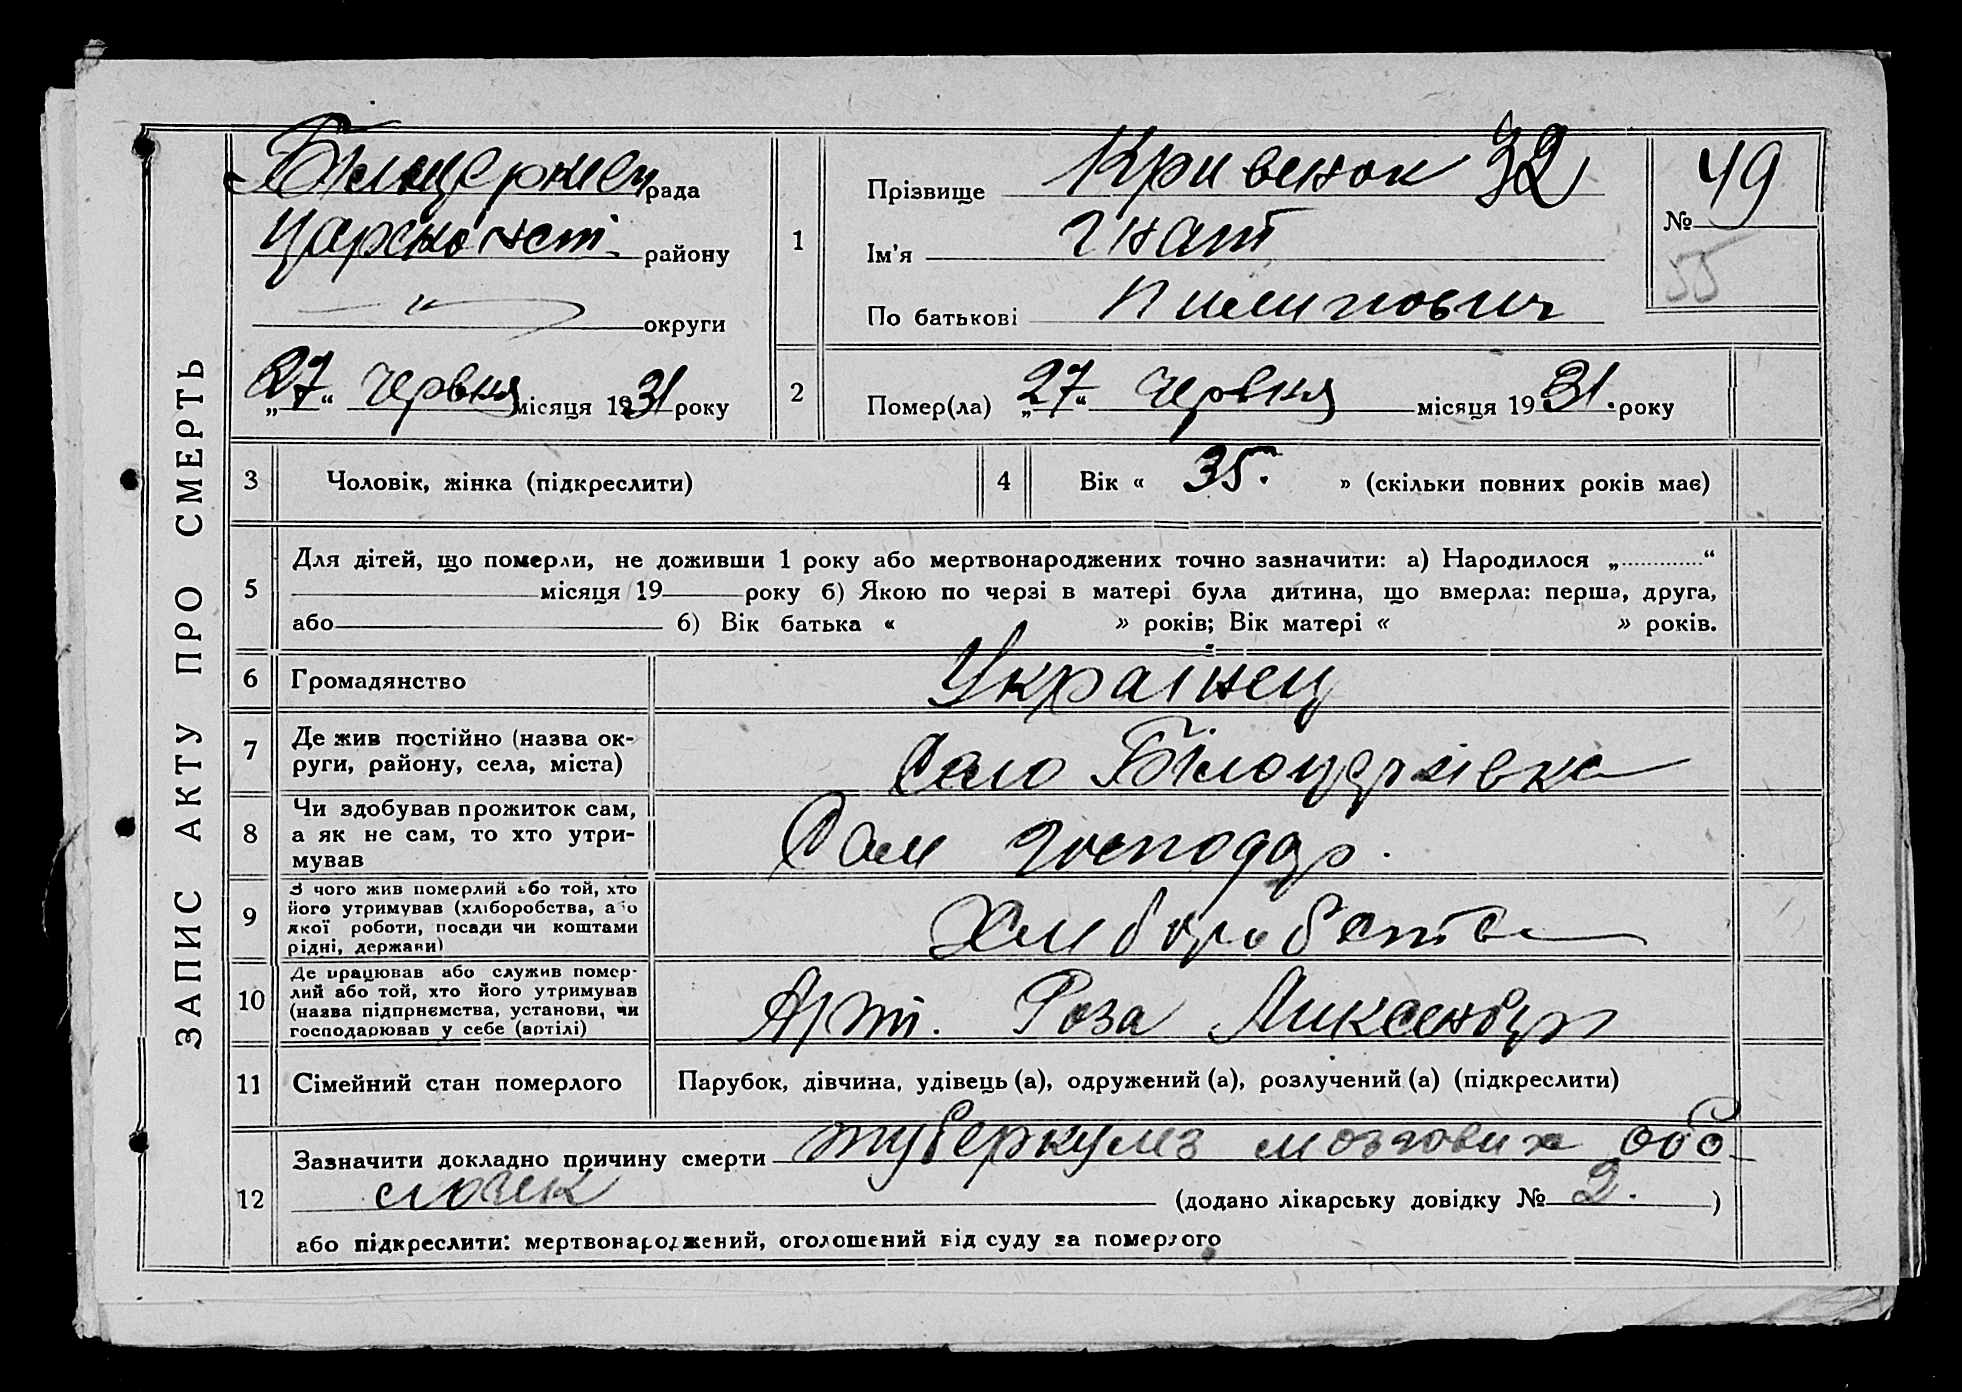 ЗАПИС АКТУ ПРО СМЕРТЬ
рада
району
округи
„27“ червня місяця 1931 року
1
Прізвище Кривенок 32
Ім'я Гнат
По батькові Пилипович
№ 49
55
2
Помер(ла) „27“ червня місяця 1931. року
3 Чоловік, жінка (підкреслити)
4 Вік « 35. » (скільки повних років має)
5
Для дітей, що померли, не доживши 1 року або мертвонароджених точно зазначити: а) Народилося „............“
місяця 19 року б) Якою по черзі в матері була дитина, що вмерла: перша, друга,
або 6) Вік батька « » років; Вік матері « » років.
6 Громадянство Українец
7
Де жив постійно (назва ок-
руги, району, села, міста)
Село
8
Чи здобував прожиток сам,
а як не сам, то хто утри-
мував
Сам господар.
9
З чого жив померлий або той, хто
його утримував (хліборобства, або
якої роботи, посади чи коштами
рідні, держави)
10
Де працював або служив помер-
лий або той, хто його утримував
(назва підприємства, установи, чи
господарював у себе (артілі)
Арт. Роза
11 Сімейний стан померлого
Парубок, дівчина, удівець (а), одружений (а), розлучений (а) (підкреслити)
12
Зазначити докладно причину смерти туберкулез мозгових обо
лочек (додано лікарську довідку № 2. )
або підкреслити: мертвонароджений, оголошений від суду за померлого